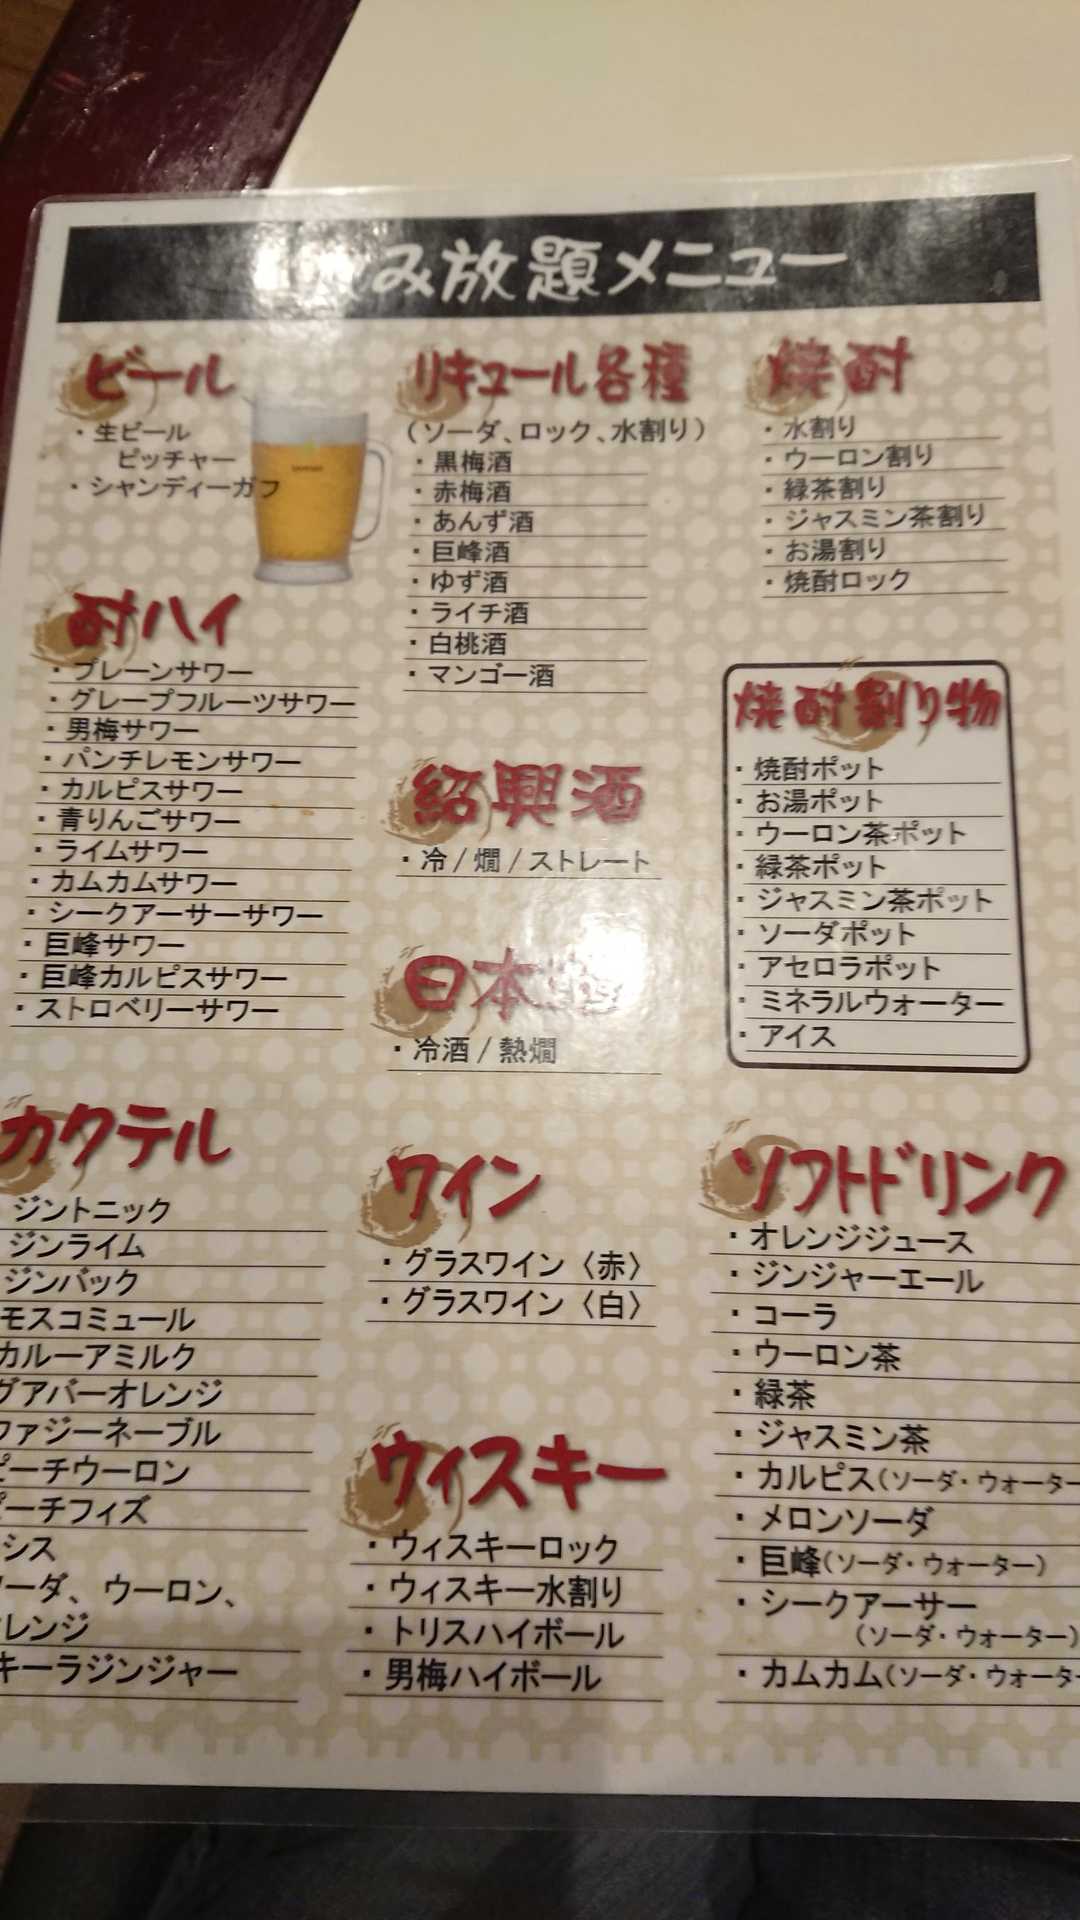 み放題メニュー
ビール
・生ビール
ピッチャー
・シャンディーガフ
酎ハイ
・プレーンサワー
・グレープフルーツサワー
・男梅サワー
・パンチレモンサワー
・カルピスサワー
・青りんごサワー
・ライムサワー
・カムカムサワー
・シークアーサーサワー
・巨峰サワー
・巨峰カルピスサワー
・ストロベリーサワー
カクテル
ジントニック
ジンライム
ジンバック
モスコミュール
カルーアミルク
グアバーオレンジ
ファジーネーブル
ピーチウーロン
ピーチフィズ
シス
ソーダ、ウーロン、
レンジ
キーラジンジャー
リキュール各種
(ソーダ、ロック、水割り)
・黒梅酒
・赤梅酒
・あんず酒
・巨峰酒
・ゆず酒
・ライチ酒
・白桃酒
・マンゴー酒
紹興酒
・冷/燗/ストレート
日本
・冷酒/熱燗
ワイン
・グラスワイン〈赤〉
・グラスワイン〈白〉
ウィスキー
・ウィスキーロック
・ウィスキー水割り
・トリスハイボール
・男梅ハイボール
焼酎
・水割り
・ウーロン割り
・緑茶割り
・ジャスミン茶割り
・お湯割り
・焼酎ロック
焼酎割り物
・焼酎ポット
・お湯ポット
・ウーロン茶ポット
・緑茶ポット
・ジャスミン茶ポット
・ソーダポット
・アセロラポット
・ミネラルウォーター
・アイス
ソフトドリンク
・オレンジジュース
・ジンジャーエール
・コーラ
・ウーロン茶
・緑茶
・ジャスミン茶
・カルピス(ソーダ・ウォーター
・メロンソーダ
・巨峰(ソーダ・ウォーター)
・シークアーサー
(ソーダ・ウォーター)
・カムカム(ソーダ・ウォーター